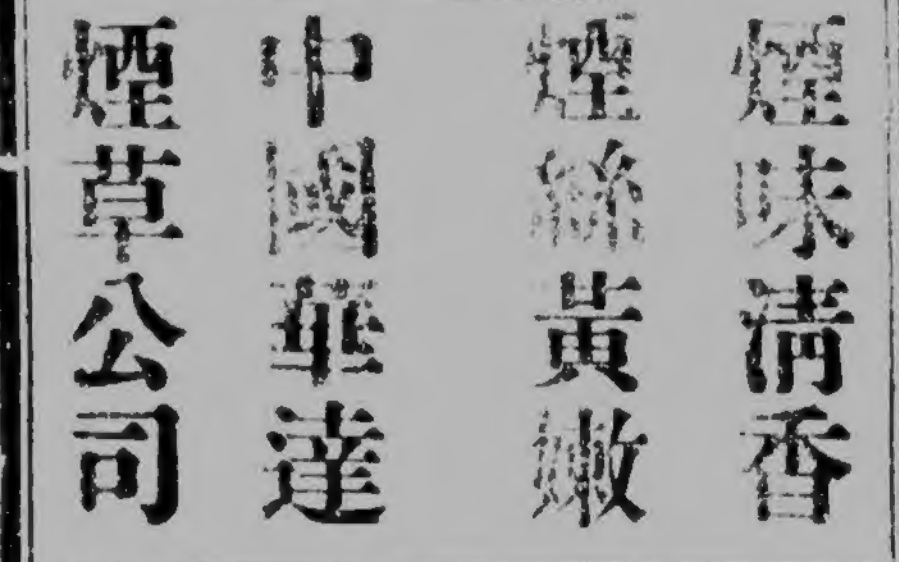 煙味清香
煙絲黃嫩
中國華達
煙草公司